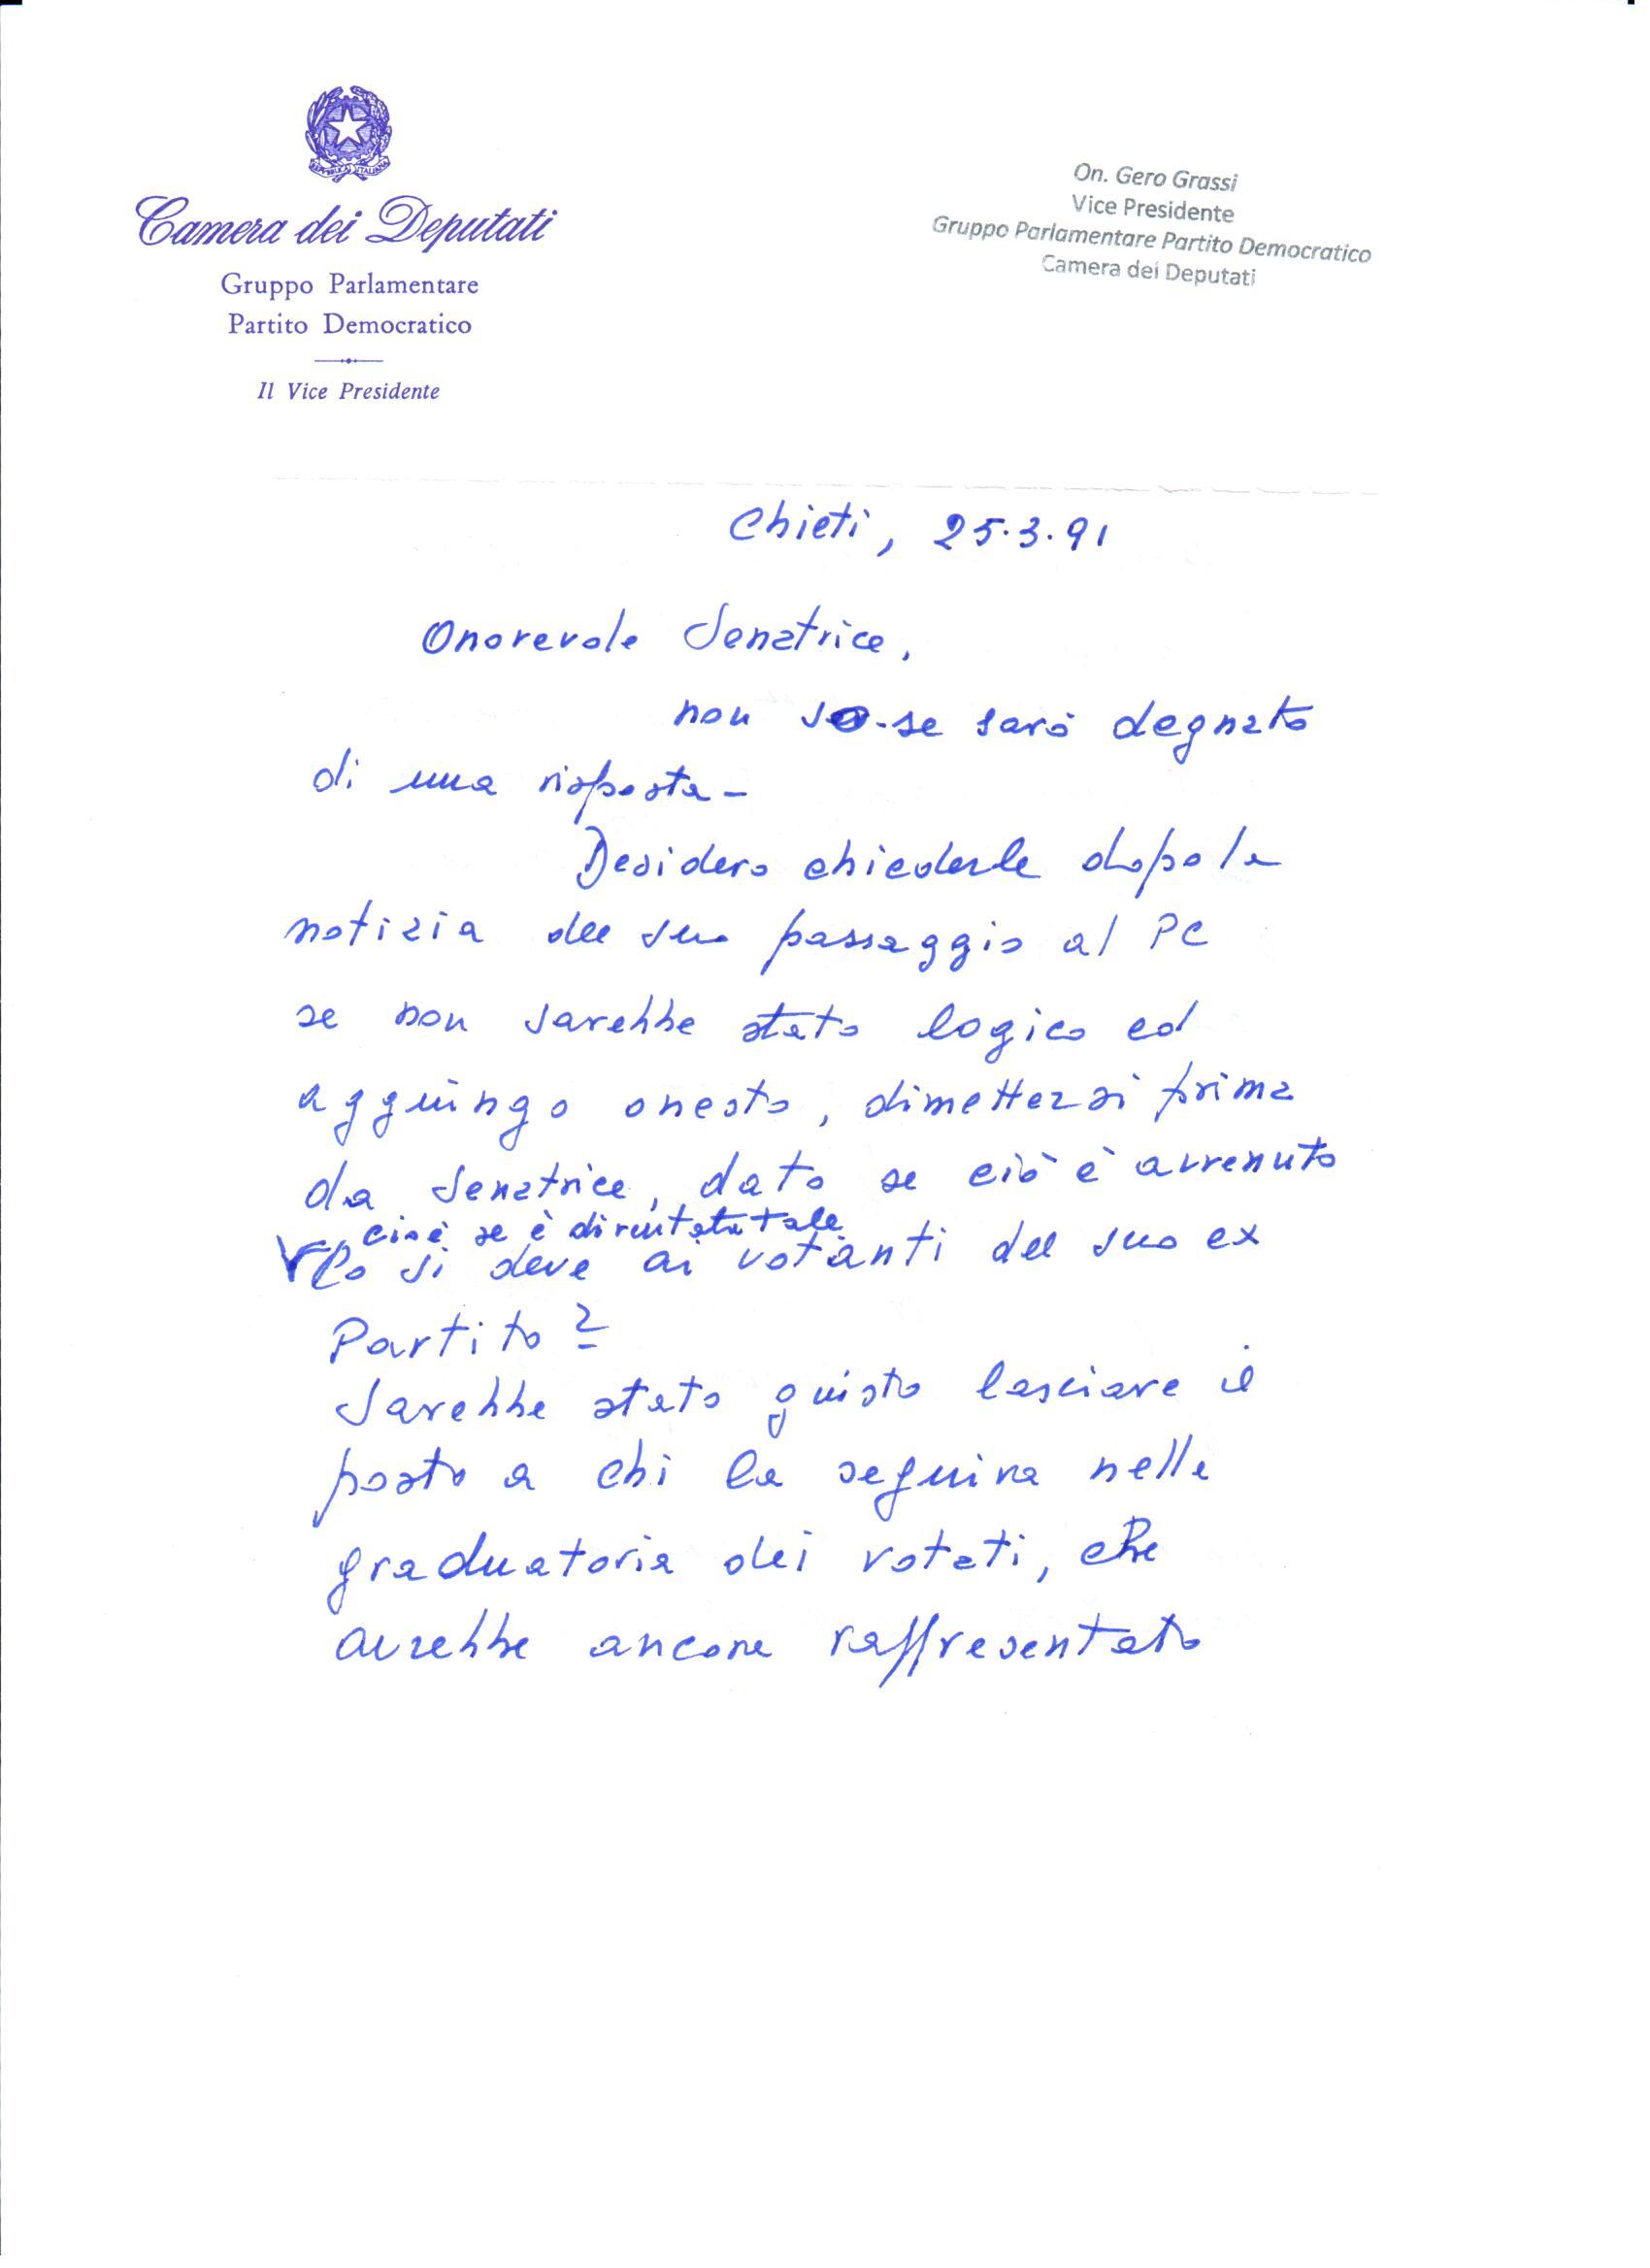 REPUBBLICA ITALIANA
Camera dei Deputati
Gruppo Parlamentare
Partito Democratico
Il Vice Presidente
On. Gero Grassi
Vice Presidente
Gruppo Parlamentare Partito Democratico
Camera dei Deputati
Chieti, 25.3.91
Onorevole Senatrice,
non so se sarò degnato
di una risposta -
Desidero chiederle dopo la
notizia del suo passaggio al PC
se non sarebbe stato logico ed
aggiungo onesto, dimettersi prima
da Senatrice, dato se ciò è avvenuto
cioè se è diventata tale
lo si deve ai votanti del suo ex
Partito?
Sarebbe stato giusto lasciare il
posto a chi la seguiva nella
graduatoria dei votati, che
avrebbe ancora rappresentato